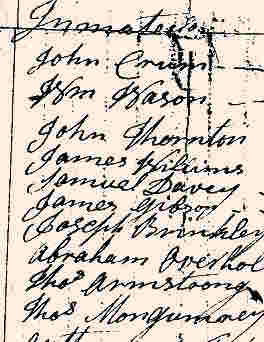 Inmates
John Crum
Wm Wason
John Thornton
James Wiliums
Samuel Davey
James Gibson
Joseph Brinkley
Abraham Overhol
Thos Armstrong
Thos Mongumrey